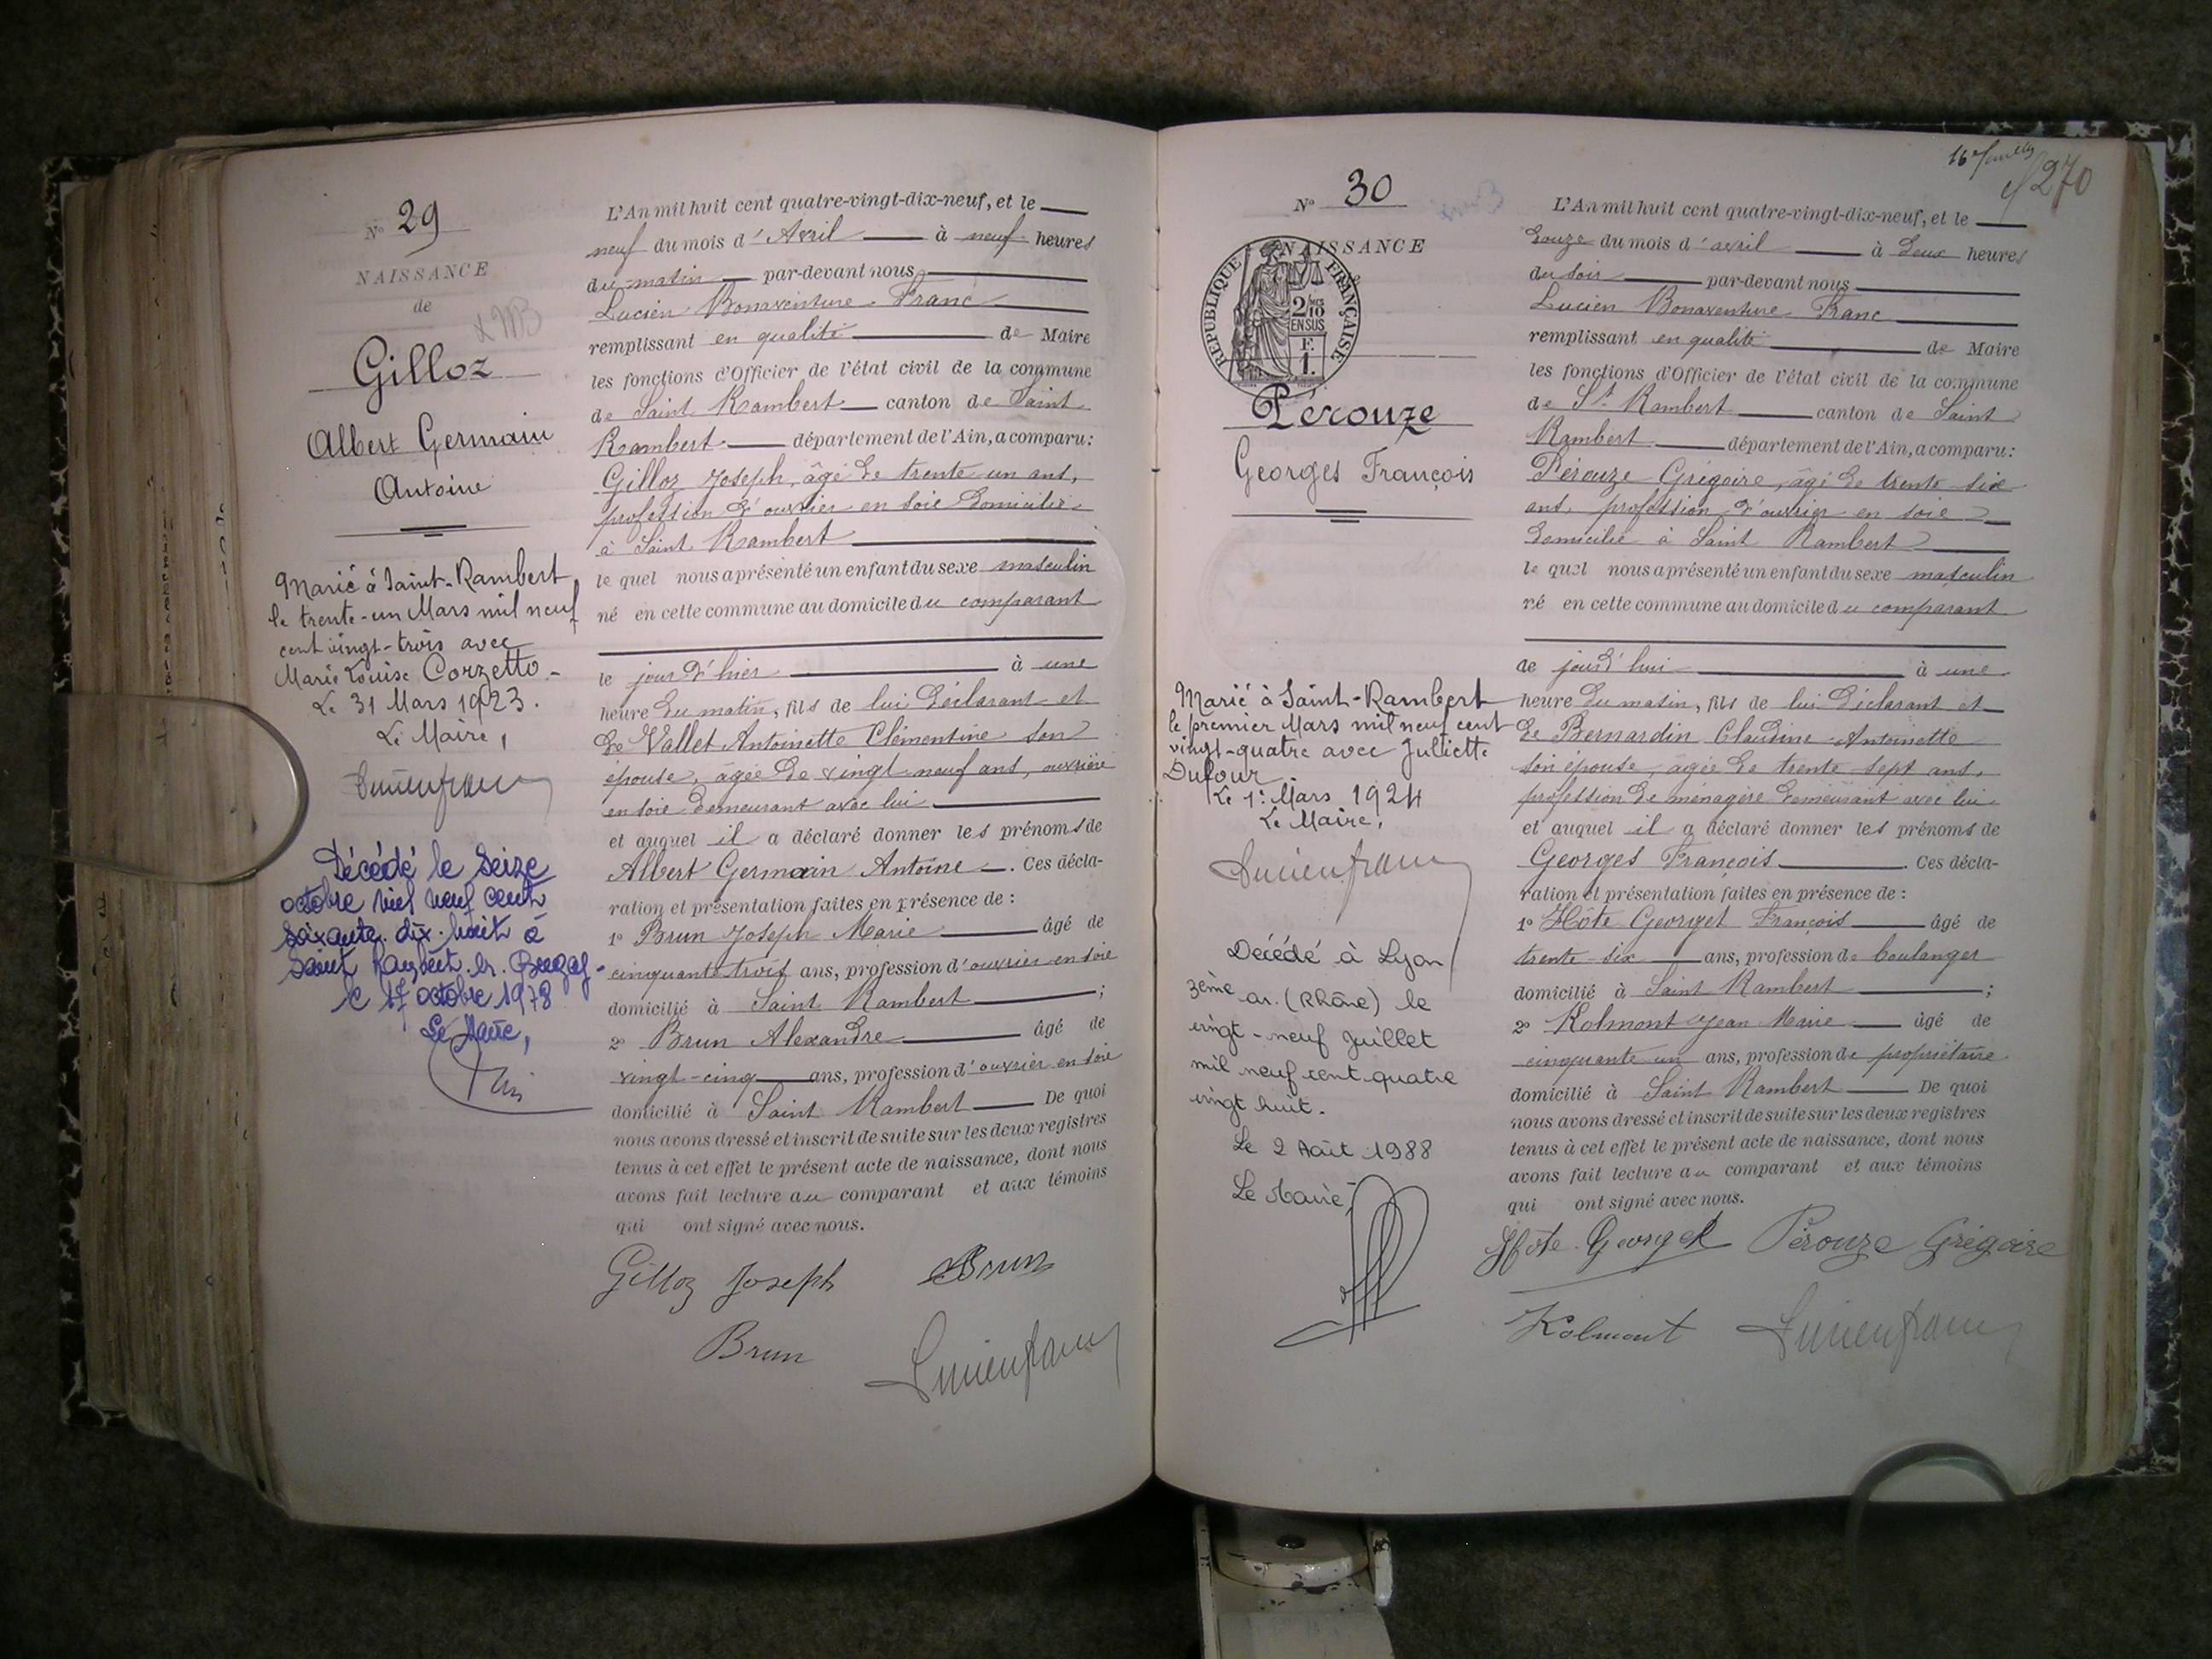 N° 29
NAISSANCE
de
Gilloz
Albert Germain
Antoine
Marié à Saint-Rambert
le trente-un Mars mil neuf
cent vingt-trois avec
Marie Louise Corzetto.
Le 31 Mars 1923.
Le Maire,
Lucien franc
Décédé le seize
octobre mil neuf cent
soixante dix-huit à
Saint Rambert. en. Bugey
le 17 octobre 1978
Le Maire,
L'An mil huit cent quatre-vingt-dix-neuf, et le
neuf du mois d'Avril à neuf heures
du matin par-devant nous
Lucien Bonaventure Franc
remplissant en qualité de Maire
les fonctions d'Officier de l'état civil de la commune
de Saint Rambert canton de Saint
Rambert département de l'Ain, a comparu:
Gilloz Joseph, âgé de trente un ans,
profession d'ouvrier en soie domicilié
à Saint Rambert
le quel nous a présenté un enfant du sexe masculin
né en cette commune au domicile du comparant
le jour d'hier à une
heure du matin, fils de lui déclarant et
de Vallet Antoinette Clémentine son
épouse, âgée de vingt-neuf ans, ouvrière
en soie demeurant avec lui
et auquel il a déclaré donner les prénoms de
Albert Germain Antoine. Ces décla-
ration et présentation faites en présence de:
1° Brun Joseph Marie âgé de
cinquante trois ans, profession d'ouvrier en soie
domicilié à Saint Rambert;
2° Brun Alexandre âgé de
vingt-cinq ans, profession d'ouvrier en soie
domicilié à Saint Rambert De quoi
nous avons dressé et inscrit de suite sur les deux registres
tenus à cet effet le présent acte de naissance, dont nous
avons fait lecture au comparant et aux témoins
qui ont signé avec nous.
Gilloz Joseph Brun
Brun Lucien franc
16e
270
N° 30
NAISSANCE
REPUBLIQUE FRANÇAISE
2/10
EN SUS
F.
1.
Pérouze
Georges François
Marié à Saint-Rambert
le premier Mars mil neuf cent
vingt-quatre avec Juliette
Dufour
Le 1er Mars 1924
Le Maire,
Lucien franc
Décédé à Lyon
3ème ar. (Rhône) le
vingt-neuf Juillet
mil neuf cent quatre
vingt huit.
Le 2 Août 1988
Le Maire,
L'An mil huit cent quatre-vingt-dix-neuf, et le
douze du mois d'avril à deux heures
du soir par-devant nous
Lucien Bonaventure Franc
remplissant en qualité de Maire
les fonctions d'Officier de l'état civil de la commune
de St Rambert canton de Saint
Rambert département de l'Ain, a comparu:
Pérouze Grégoire, âgé de trente-six
ans, profession d'ouvrier en soie
domicilié à Saint Rambert
le quel nous a présenté un enfant du sexe masculin
né en cette commune au domicile du comparant
ce jourd'hui à une
heure du matin, fils de lui déclarant et
de Bernardin Claudine Antoinette
son épouse, âgée de trente sept ans,
profession de ménagère demeurant avec lui
et auquel il a déclaré donner les prénoms de
Georges François. Ces décla-
ration et présentation faites en présence de:
1° Hôte Georget François âgé de
trente-six ans, profession de boulanger
domicilié à Saint Rambert;
2° Kolmont Jean Marie âgé de
cinquante un ans, profession de propriétaire
domicilié à Saint Rambert De quoi
nous avons dressé et inscrit de suite sur les deux registres
tenus à cet effet le présent acte de naissance, dont nous
avons fait lecture au comparant et aux témoins
qui ont signé avec nous.
Hôte Georget Pérouze Grégoire
Kolmont Lucien franc